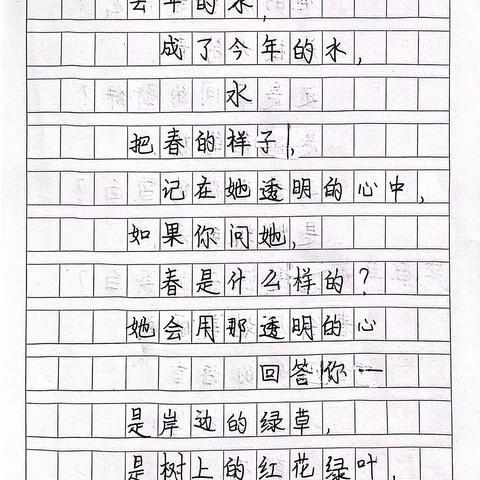 去年的水,
成了今年的水,
水
把春的样子,
记在她透明的心中,
如果你问她,
春是什么样的?
她会用那透明的心
回答你…
是岸边的绿草,
是树上的红花绿叶,